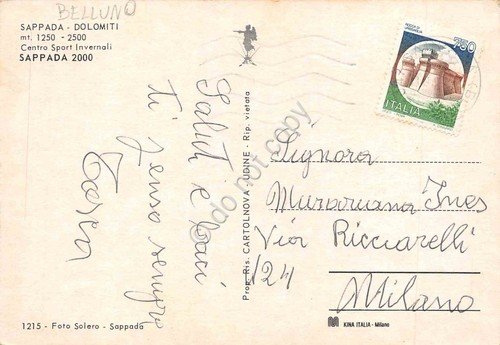 BELLUNO
SAPPADA - DOLOMITI
mt. 1250 - 2500
Centro Sport Invernali
SAPPADA 2000
Saluti e baci
ti penso sempre
Prop. Ris. CARTOLNOVA - UDINE - Rip. vietata
do not copy
750
ITALIA
Signora
Ines
Via Ricciarelli
124
Milano
1215 - Foto Solero - Sappada
KINA ITALIA - Milano